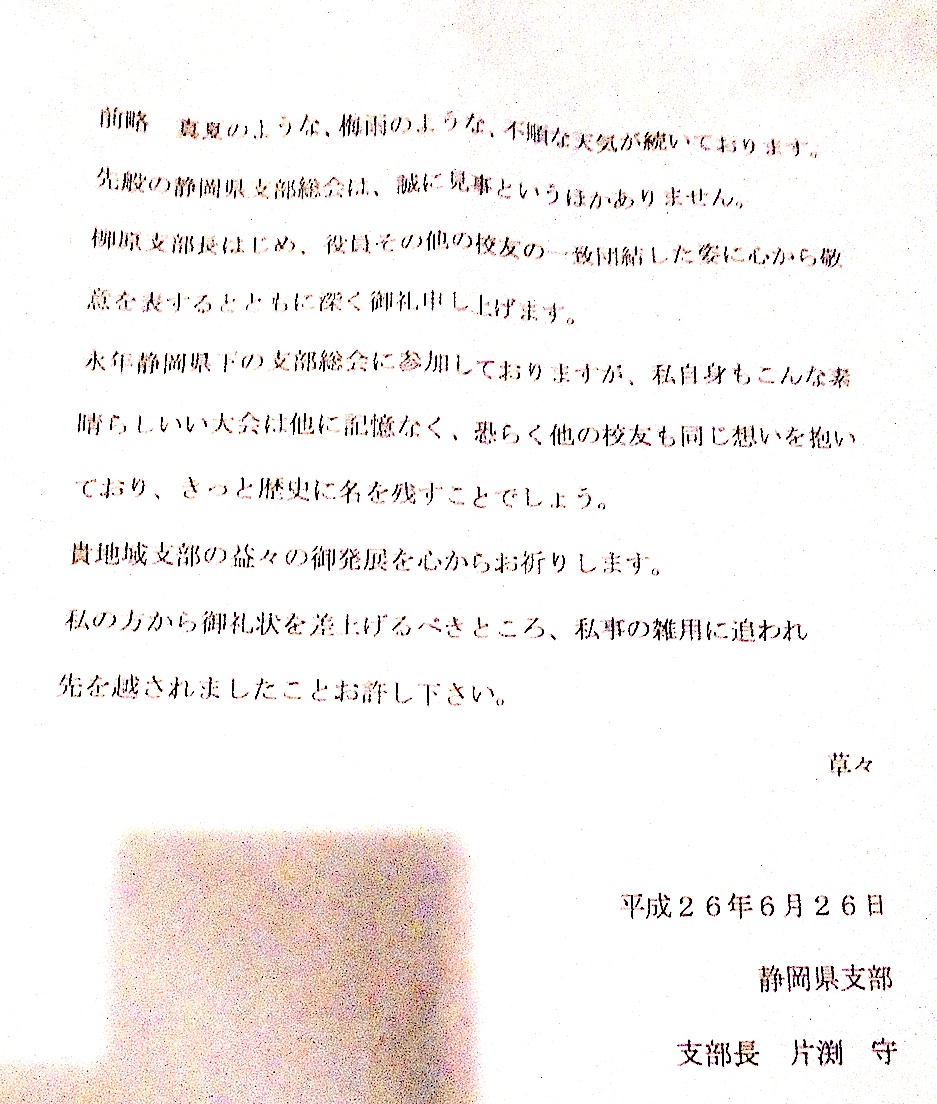 前略　真夏のような、梅雨のような、不順な天気が続いております。
先般の静岡県支部総会は、誠に見事というほかありません。
柳原支部長はじめ、役員その他の校友の一致団結した姿に心から敬
意を表するとともに深く御礼申し上げます。
永年静岡県下の支部総会に参加しておりますが、私自身もこんな素
晴らしいい大会は他に記憶なく、恐らく他の校友も同じ想いを抱い
ており、きっと歴史に名を残すことでしょう。
貴地域支部の益々の御発展を心からお祈りします。
私の方から御礼状を差上げるべきところ、私事の雑用に追われ
先を越されましたことお許し下さい。
草々
平成２６年６月２６日
静岡県支部
支部長　片渕　守